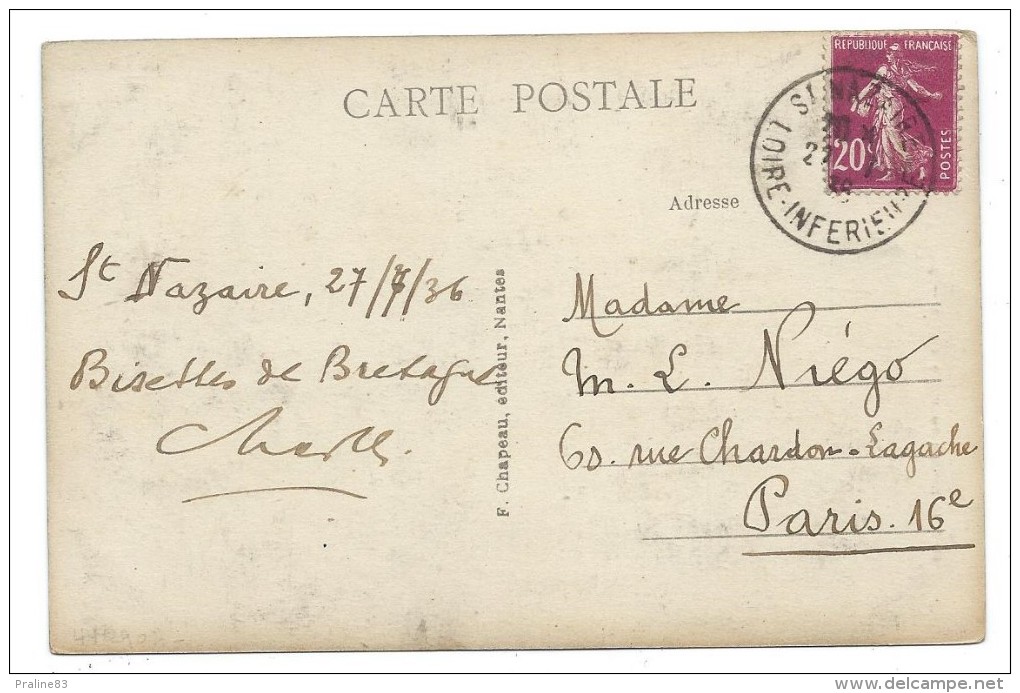 CARTE POSTALE
REPUBLIQUE FRANÇAISE
20c
POSTES
ST NAZAIRE
27
36
LOIRE-INFERIEURE
Adresse
St Nazaire, 27/7/36
Biselles de Bretagne
Charles.
F. Chapeau, editeur, Nantes
Madame
M. L. Niégo
60. rue Chardon-Lagache
Paris. 16e
Praline83
www.delcampe.net